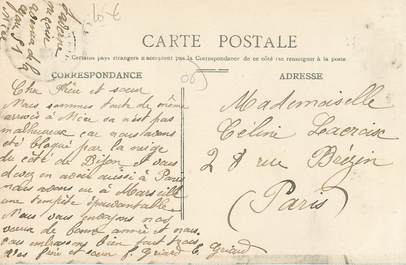 CARTE POSTALE
Certains pays étrangers n'acceptent pas la Correspondance de ce côté (se renseigner à la poste
CORRESPONDANCE
ADRESSE
Cher Frère et sœur
Nous sommes tout de même
arrivés à Nice sa n'est pas
malheureux car nous avons
été bloqué par la neige
du côté de Dijon et vous
devez en avoir aussi à Paris
nous avons eu à Marseille
une tempête épouvantable
Nous vous envoyons nos
vœux de bonne année et nous
vous embrassons bien fort tous
Vos frère et sœur
Mademoiselle
Céline Lacroix
28 rue Brézin
(Paris)